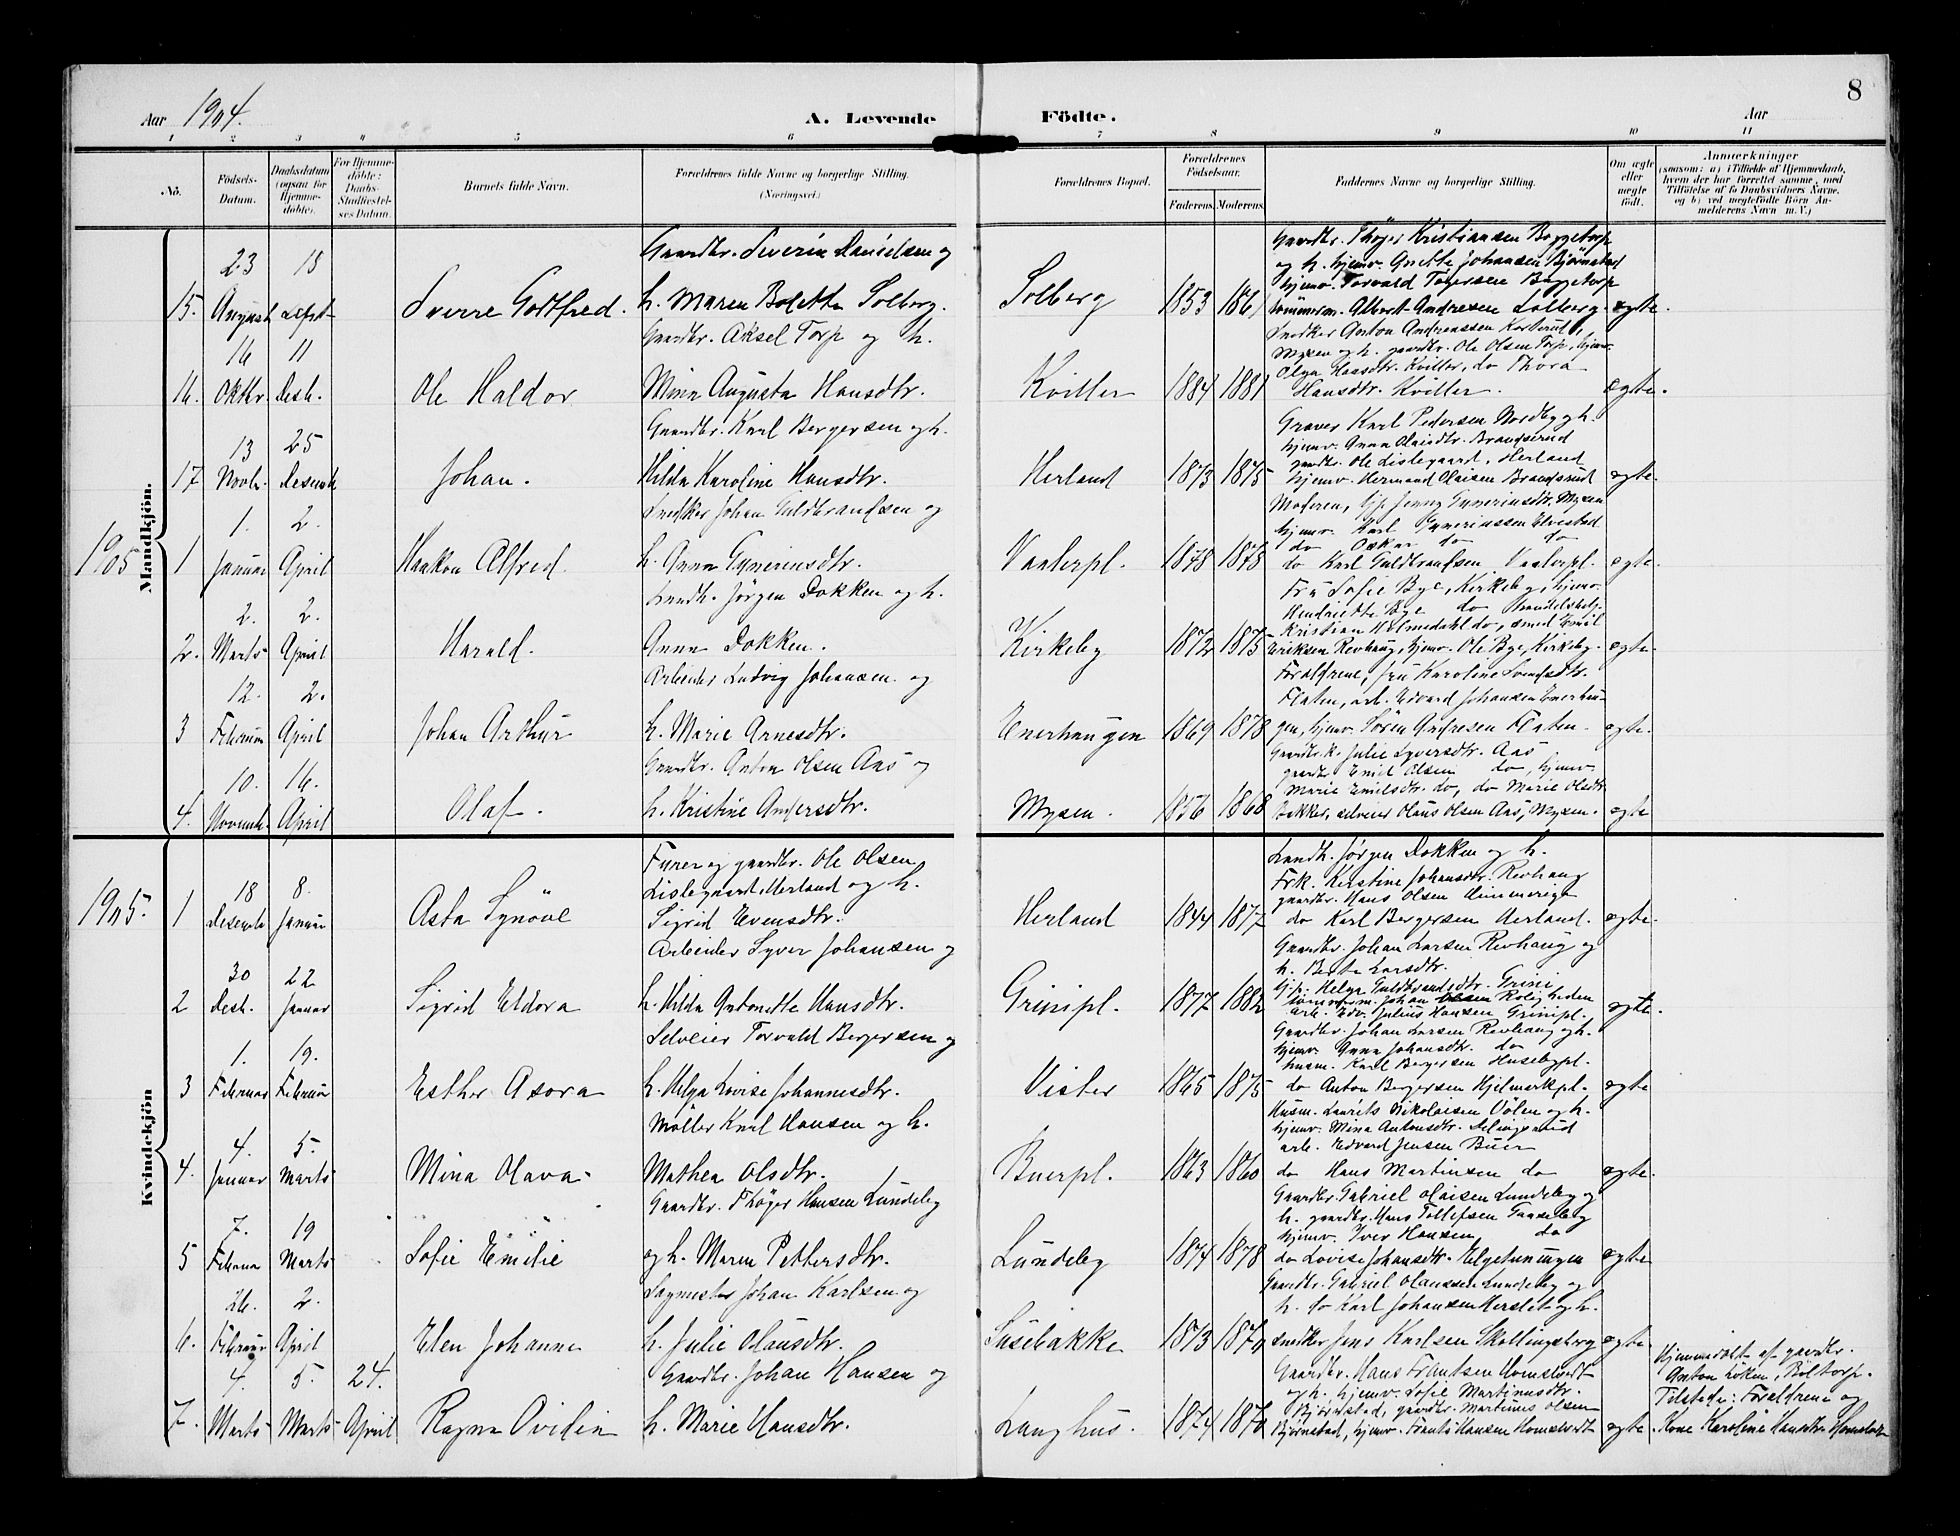 8
Aar 1904.
A. Levende
Födte.
Aar
1 2 3 4 5 6 7 8 9 10 11
No.
Födsels-Datum.
Daabsdatum (ogsaa for Hjemmedöbte).
For Hjemmedöbte: Daabs-Stadfæstelses Datum.
Barnets fulde Navn.
Forældrenes fulde Navne og borgerlige Stilling.
(Næringsvei.)
Forældrenes Bopæl.
Forældrenes Födselsaar.
Faderens. Moderens.
Faddernes Navne og borgerlige Stilling.
Om ægte eller uægte födt.
Anmærkninger
(saasom: a) i Tilfælde af Hjemmedaab, hvem der har forrettet samme, med Tilföielse af to Daabsvidners Navne, og b) ved uægtefödte Börn Anmelderens Navn m. V.)
Mandkjön.
15. 23 August 18 Septr Sverre Gottfred.
Gaardbr. Severin Danielsen og
h. Maren Bolette Solberg.
Solberg 1853 1861
Gaardbr. Thöger Kristiansen Boggetorp
og h. hjemv. Anette Johansen Björnstad
hjemv. Torvald Tögersen Boggetorp
tömmerm. Albert Andresen Solberg. ægte.
16. 16 Oktbr. 11 Desb. Ole Haldor
Gaardbr. Aksel Torp og h.
Mina Augusta Hansdtr.
Kviller 1884 1881
Snedker Anton Andreassen
Mysen og h. gaardbr. Ole Olsen Torp, hjemv.
Olga Hansdtr. Kviller, do Thora
Hansdtr. Kviller. ægte.
17 13 Novbr. 25 Desemb Johan.
Gaardbr. Karl Bergersen og h.
Hilda Karoline Hansdtr.
Herland 1873 1875
Graver Karl Pedersen Nordby og h.
hjemv. Anna Olaisdtr. Brandsrud
gaardbr. Ole Lislegaard, Herland
hjemv. Herman Olaisen Brandsrud ægte.
1905
1 1. Januar 2. April Haakon Alfred.
Snedker Johan Guldbrandsen og
h. Anna Gunerinsdtr.
Vaalerpl. 1878 1878
Moderen, Jenny Gunerinsdtr. Mysen
hjemv. Karl Gunerinssen
do Oskar do do
do Karl Guldbrandsen Vaalerpl. ægte.
2. 2. Marts 2. April Harald.
Landh. Jörgen Dokken og h.
Anna Dokken.
Kirkeby 1872 1875
Fru Sofie Bye, Kirkeby, hjemv.
Hendriette Bye do
Kristian Holmedahl do, smed Emil
Eriksen Revhaug, hjemv. Ole Bye, Kirkeby. ægte.
3 12. Februar 2. April Johan Arthur
Arbeider Ludvig Johansen og
h. Marie Arnesdtr.
Enerhaugen 1869 1878
Foraldrene, fru Karoline Svendsdtr.
Flaten, arb. Edvard Johansen Enerhau-
gen, hjemv. Sören Andresen Flaten. ægte.
4. 10. Novemb. 16. April Olaf.
Gaardbr. Anton Olsen Aas og
h. Kristine Andersdtr.
Mysen. 1856 1868
Gaardbr.k. Julie Syversdtr. Aas
gaardbr. Emil Olsen do, hjemv.
Marie Emilsdtr. do, do Marie Olsdtr.
Bakker, selveier Olaus Olsen Aas, Mysen. ægte
Kvindekjön
1905.
1 18 Desemb 8. Januar Asta Synöve
Furer og gaardbr. Ole Olsen
Lislegaard Herland og h.
Sigrid Evensdtr.
Herland 1844 1877
Landh. Jörgen Dokken og h.
Frk. Kirstine Johansdtr. Revhaug
gaardbr. Hans Olsen
do Karl Bergersen Herland. ægte.
2 30 Desb. 22 Januar Sigrid Eldora
Arbeider Syver Johansen og
h. Hilda Antonette Hansdtr.
Grinipl. 1877 1882
Gaardbr. Johan Larsen Revhaug og
h. Berte Larsdtr.
Gp. Helga Guldbrandsdtr. Grini
tömmerm. Johan Olsen Roligheden
arb. Edv. Julius Hansen Grinipl. ægte.
3 1. Februar 19. Februar Esther Asora
Selveier Torvald Bergersen og
h. Helga Lovise Johannesdtr.
Vister 1865 1875
Gaardbr. Johan Larsen Revhaug og h.
hjemv. Anna Johansdtr. do
husm. Karl Bergersen Husebypl.
do Anton Bergersen Hjelmarkpl. ægte
4. 4. Januar 5. Marts Mina Olava
Möller Karl Hansen og h.
Mathea Olsdtr.
Buerpl. 1863 1860
Husm. Laurits Nikolaisen Völen og h.
hjemv. Mina Antonsdtr.
arb. Edvard Jensen Buer
do Hans Martinsen do ægte.
5 7. Februar 19 Marts Sofie Emilie
Gaardbr. Thöger Hansen Lundeby
og h. Maren Pettersdtr.
Lundeby 1874 1878
Gaardbr. Gabriel Olaisen Lundeby og
h. gaardbr. Hans Tollefsen Gaaseby
hjemv. Iver Hansen do
do Lovise Johansdtr. Helgetunungen ægte
6. 26. Februar 2. April Elen Johanne
Sagmester Johan Karlsen og
h. Julie Olausdtr.
Susebakke 1873
Gaardbr. Gabriel Olaussen Lundeby og
h. do Karl Johansen Herslet og h.
snedker Jens Karlsen Skollingsberg ægte.
7. 4. Marts 5. Marts 24. April Ragna Ovidia
Gaardbr. Johan Hansen og
h. Marie Hansdtr.
Langhus. 1874
Gaardbr. Hans Frantsen Homstvedt
og h. hjemv. Sofie Martinusdtr.
Björnstad, gaardbr. Martinus Olsen
Björnstad, hjemv. Frants Hansen Homstvedt ægte
Hjemmedöbt af gaardbr.
Anton Löken, Boltorp.
Tilstede: Forældrene og
Kone Karoline Hansdtr. Homstvedt